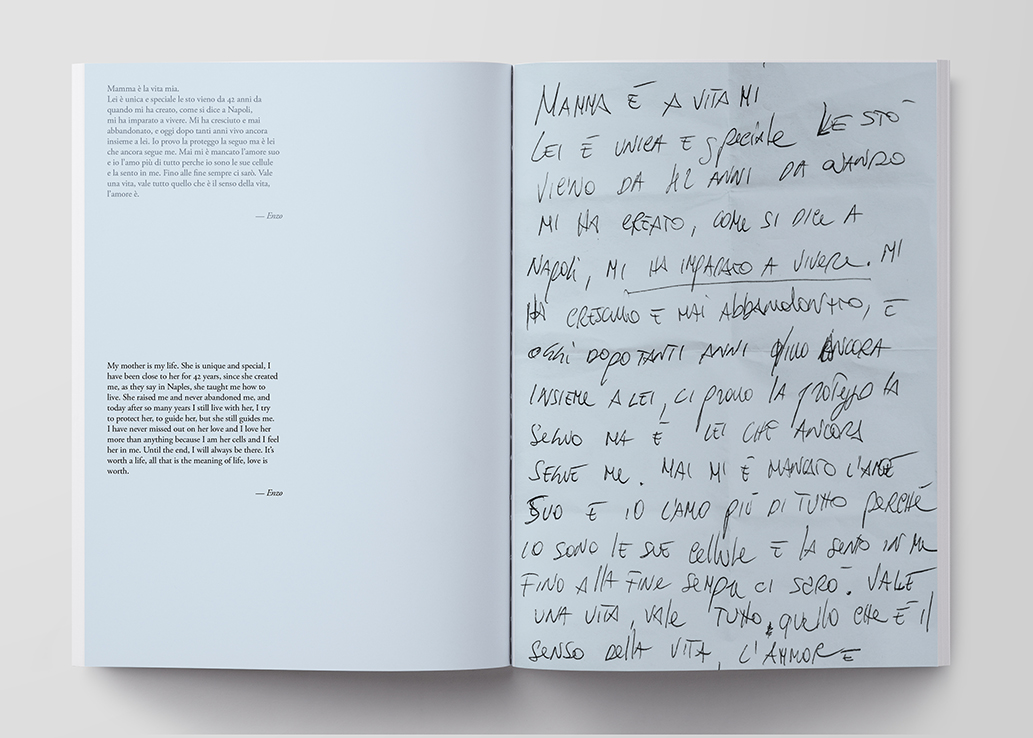 Mamma è la vita mia.
Lei è unica e speciale le sto vieno da 42 anni da
quando mi ha creato, come si dice a Napoli,
mi ha imparato a vivere. Mi ha cresciuto e mai
abbandonato, e oggi dopo tanti anni vivo ancora
insieme a lei. Io provo la proteggo la seguo ma é lei
che ancora segue me. Mai mi è mancato l'amore suo
e io l'amo più di tutto perche io sono le sue cellule
e la sento in me. Fino alle fine sempre ci sarò. Vale
una vita, vale tutto quello che è il senso della vita,
l'amore è.
— Enzo
My mother is my life. She is unique and special, I
have been close to her for 42 years, since she created
me, as they say in Naples, she taught me how to
live. She raised me and never abandoned me, and
today after so many years I still live with her, I try
to protect her, to guide her, but she still guides me.
I have never missed out on her love and I love her
more than anything because I am her cells and I feel
her in me. Until the end, I will always be there. It's
worth a life, all that is the meaning of life, love is
worth.
— Enzo
MAMMA È A VITA MI
LEI È UNICA E SPECIALE LE STÒ
VIENO DA 42 ANNI DA QUANDO
MI HA CREATO, COME SI DICE A
NAPOLI, MI HA IMPARATO A VIVERE. MI
HA CRESCIUTO E MAI ABBANDONATO, E
OGGI DOPO TANTI ANNI VIVO ANCORA
INSIEME A LEI, CI PROVO LA PROTEGGO LA
SEGUO MA È LEI CHE ANCORA
SEGUE ME. MAI MI È MANCATO L'AMORE
SUO E IO L'AMO PIÙ DI TUTTO PERCHÉ
IO SONO LE SUE CELLULE E LA SENTO IN ME
FINO ALLA FINE SEMPRE CI SARÒ. VALE
UNA VITA, VALE TUTTO, QUELLO CHE È IL
SENSO DELLA VITA, L'AMMORE